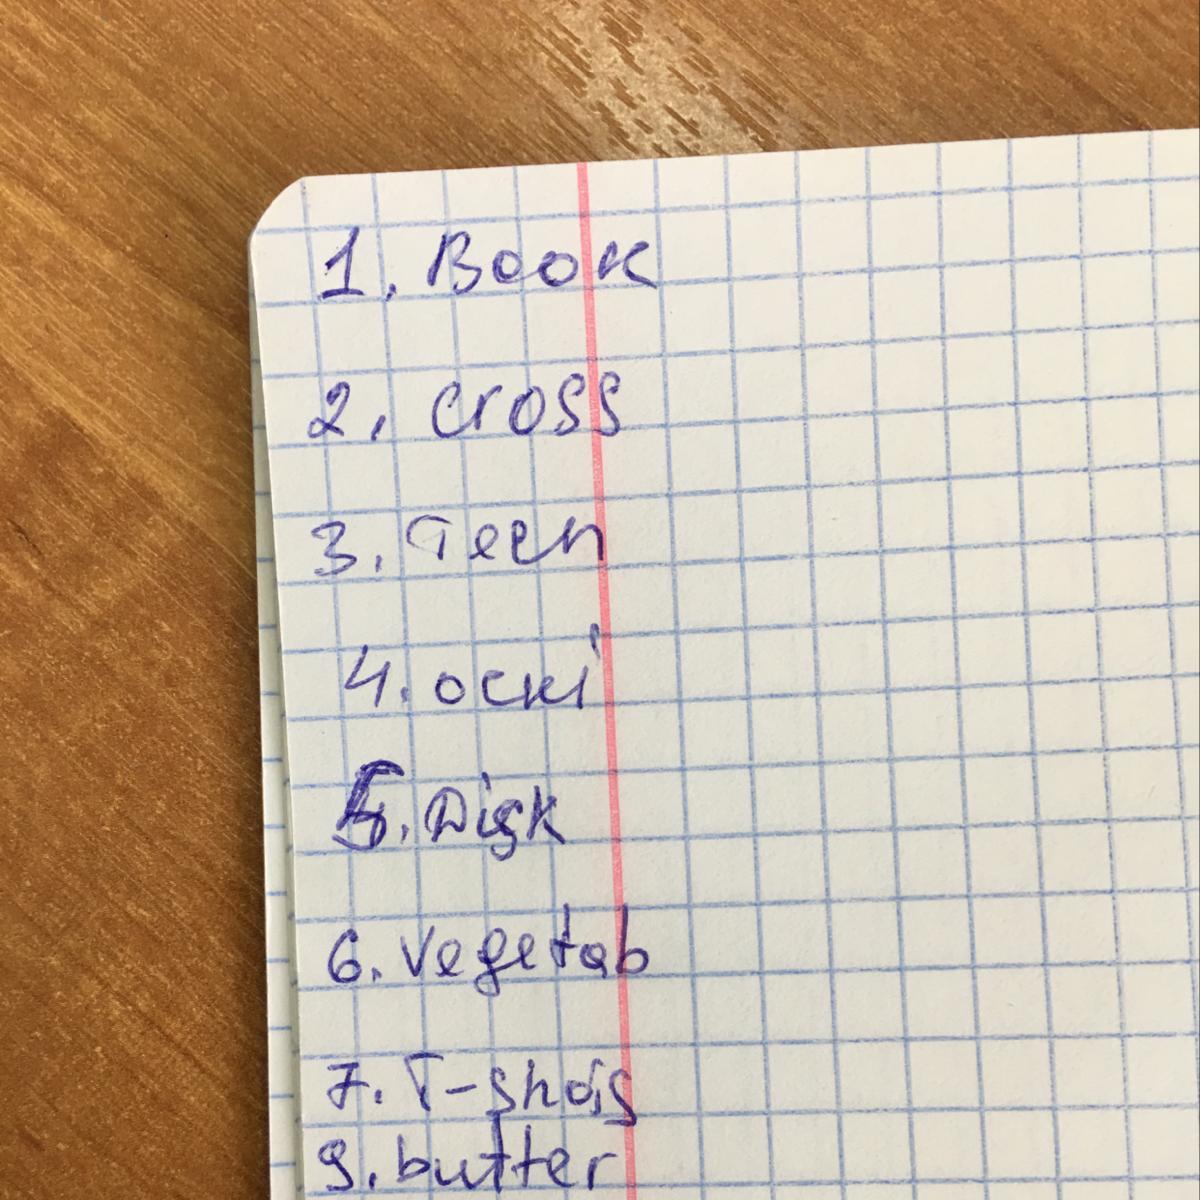 1. Book
2. cross
3. Teen
4. ocki
5. Disk
6. vegetab
7. T-shois
9. butter